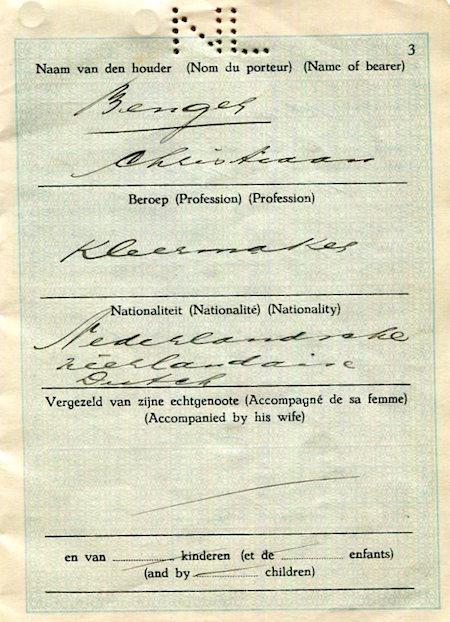 NL
3
Naam van den houder (Nom du porteur) (Name of bearer)
Benges
Christiaan
Beroep (Profession) (Profession)
Kleermaker
Nationaliteit (Nationalité) (Nationality)
Nederlandsche
néerlandaise
Dutch
Vergezeld van zijne echtgenoote (Accompagné de sa femme)
(Accompanied by his wife)
en van ........ kinderen (et de ........ enfants)
(and by ........ children)